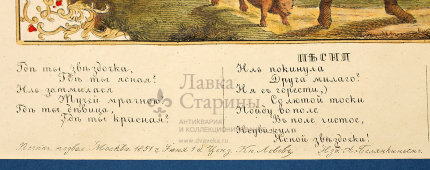 ПѢСНЯ
Гдѣ ты звѣздочка,
Гдѣ ты ясная?
Иль затмилася
Тучей мрачною?
Гдѣ ты дѣвица,
Гдѣ ты красная?
Иль покинула
Друга милаго?
И я съ горести,
Съ лютой тоски
Пойду во поле
Въ поле чистое,
Невзвижу ли
Ясной звѣздочки!
Лавка
Старины
АНТИКВАРИАТ
И КОЛЛЕКЦИОНИРОВАНИЕ
www.draveka.ru
Москва 1851 г. Іюня 1 д. Ценз. Кн. Львовъ.